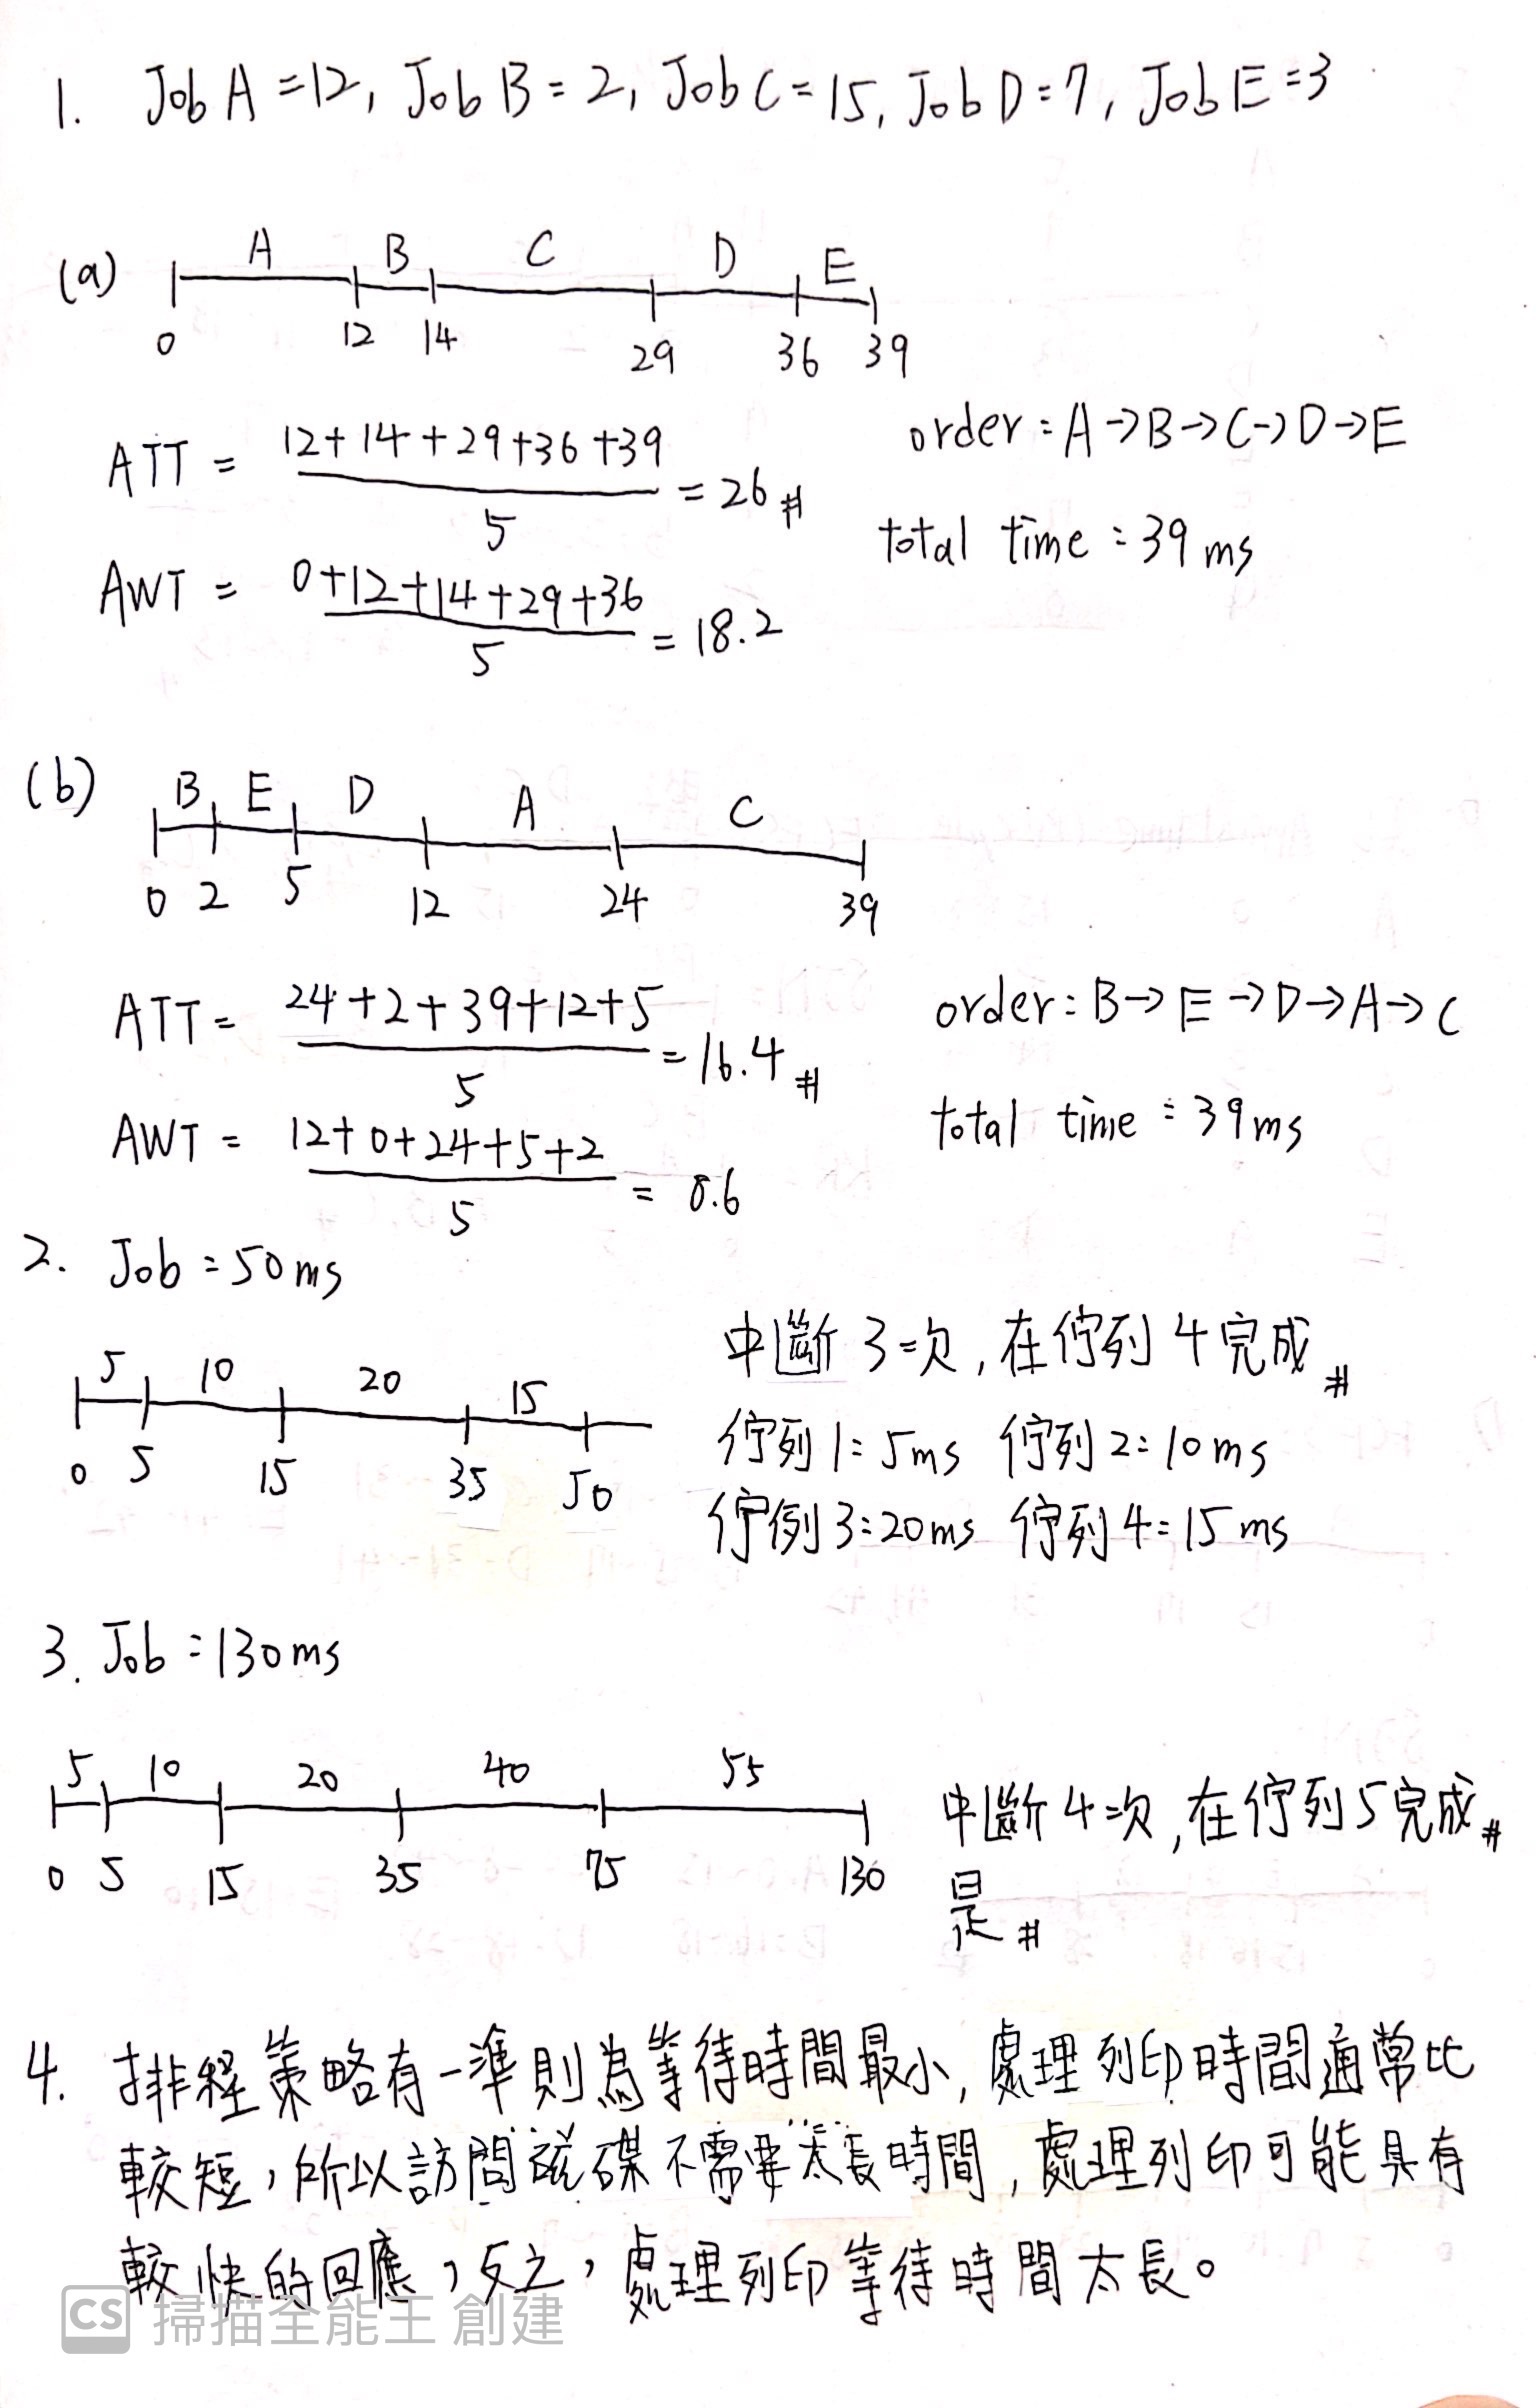 1. Job A = 12, Job B = 2, Job C = 15, Job D = 7, Job E = 3
(a) A B C D E
0 12 14 29 36 39
ATT = 12+14+29+36+39 / 5 = 26 #
order : A→B→C→D→E
total time : 39 ms
AWT = 0+12+14+29+36 / 5 = 18.2
(b) B E D A C
0 2 5 12 24 39
ATT = 24+2+39+12+5 / 5 = 16.4 #
order : B→E→D→A→C
total time : 39 ms
AWT = 12+0+24+5+2 / 5 = 8.6
2. Job = 50 ms
5 10 20 15
0 5 15 35 50
中斷3次,在佇列4完成#
佇列1=5ms 佇列2=10ms
佇例3=20ms 佇列4=15ms
3. Job = 130 ms
5 10 20 40 55
0 5 15 35 75 130
中斷4次,在佇列5完成#
是#
4. 排程策略有一準則為等待時間最小,處理列印時間通常比
較短,所以訪問磁碟不需要太長時間,處理列印可能具有
較快的回應,反之,處理列印等待時間太長。
CS 掃描全能王 創建